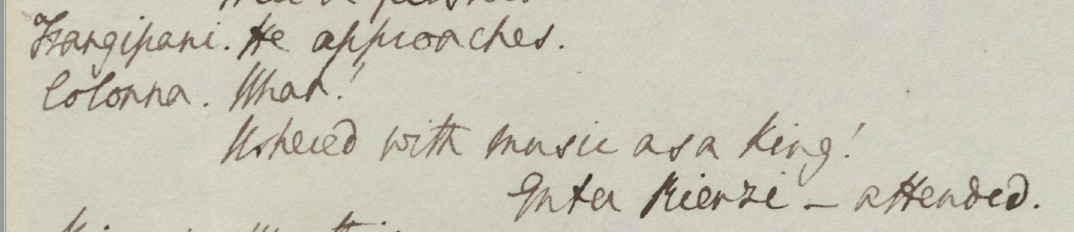 Frangipani. He approaches.
Colonna. What!
Ushered with music as a King!
Enter Rienzi – attended.